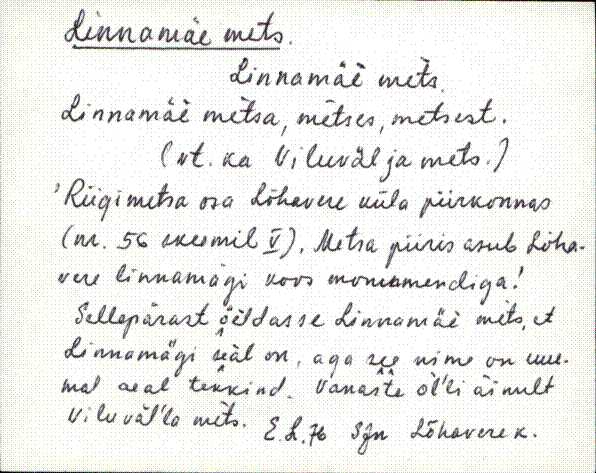 Linnamäe mets.
Linnamäè mèts.
Linnamäè mètsa, mètses, metsest.
(vt. ka Viluvälja mets.)
'Riigimetsa osa Lõhavere küla piirkonnas
(nr. 56 skeemil V). Metsa piiris asub Lõha-
vere linnamägi koos monumendiga!
Sellepärast öèldasse Linnamäè mèts, et
Linnamägi sèäl on, aga see nime on uue-
mal aeal tekkind. Vanaste òl'li äinult
Viluväl'la mèts.
E.L. 76 SJn Lõhavere k.